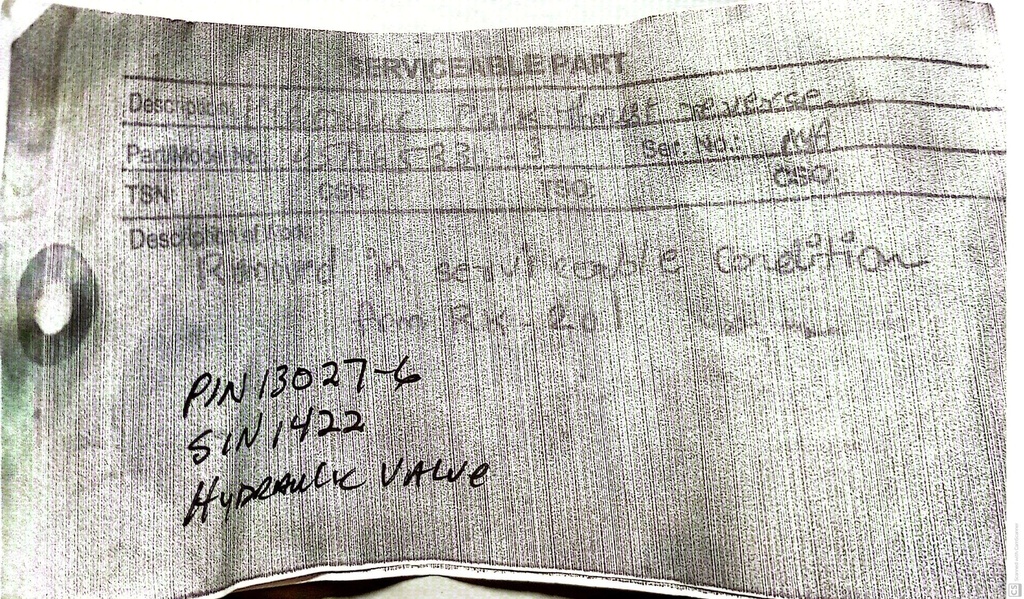 SERVICEABLE PART
Description: Hydraulic Pack thrust reverse
Part/Model No: Ser. No.: N/A
TSN: CSN: TSO: CSO:
Description of
Removed in serviceable Condition
P/N 13027-6
S/N 1422
HYDRAULIC VALVE